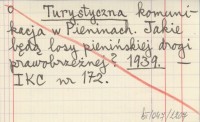 Turystyczna komuni-
kacja w Pieninach. Jakie
będą losy pienińskiej drogi
prawobrzeżnej? 1939. —
IKC nr 172.